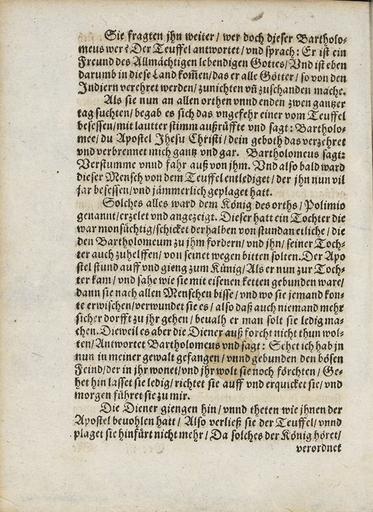 Sie fragten jhn weiter / wer doch dieser Bartholo-
meus wer? Der Teuffel antwortet / vnd sprach: Er ist ein
Freund des Allmächtigen lebendigen Gottes / Vnd ist eben
darumb in diese Land kom̃en / das er alle Götter / so von den
Indiern verehret werden / zunichten vñ zuschanden mache.
Als sie nun an allen orthen vnnd enden zwen gantzer
tag suchten / begab es sich das vngefehr einer vom Teuffel
besessen / mit lautter stimm außrüffte vnd sagt: Bartholo-
mee / du Apostel Jhesu Christi / dein geboth das verzehret
vnd verbrennet mich gantz vnd gar. Bartholomeus sagt:
Verstumme vnnd fahr auß von jhm. Vnd also bald ward
dieser Mensch von dem Teuffel entlediget / der jhn nun vil
jar besessen / vnd jämmerlich geplaget hatt.
Solches alles ward dem König des orths / Polimio
genannt / erzelet vnd angezeigt. Dieser hatt ein Tochter die
war monsüchtig / schicket derhalben von stund an etliche / die
den Bartholomeum zu jhm fordern / vnd jhn / seiner Toch-
ter auch zuhelffen / von seinet wegen bitten solten. Der Apo
stel stund auff vnd gieng zum Künig / Als er nun zur Toch-
ter kam / vnd sahe wie sie mit eisenen ketten gebunden ware /
dann sie nach allen Menschen bisse / vnd wo sie jemand kon-
te erwischen / verwundet sie es / also daß auch niemand mehr
sicher dorfft zu jhr gehen / beualh er man solt sie ledig ma-
chen. Dieweil es aber die Diener auß forcht nicht thun wol-
ten / Antwortet Bartholomeus vnd sagt: Sehet ich hab jn
nun in meiner gewalt gefangen / vnnd gebunden den bösen
Feind / der in jhr wonet / vnd jhr wolt sie noch förchten / Ge-
het hin lasset sie ledig / richtet sie auff vnd erquicket sie / vnd
morgen führet sie zu mir.
Die Diener giengen hin / vnnd theten wie jhnen der
Apostel beuohlen hatt / Also verließ sie der Teuffel / vnnd
plaget sie hinfürt nicht mehr / Da solches der König höret /
verordnet